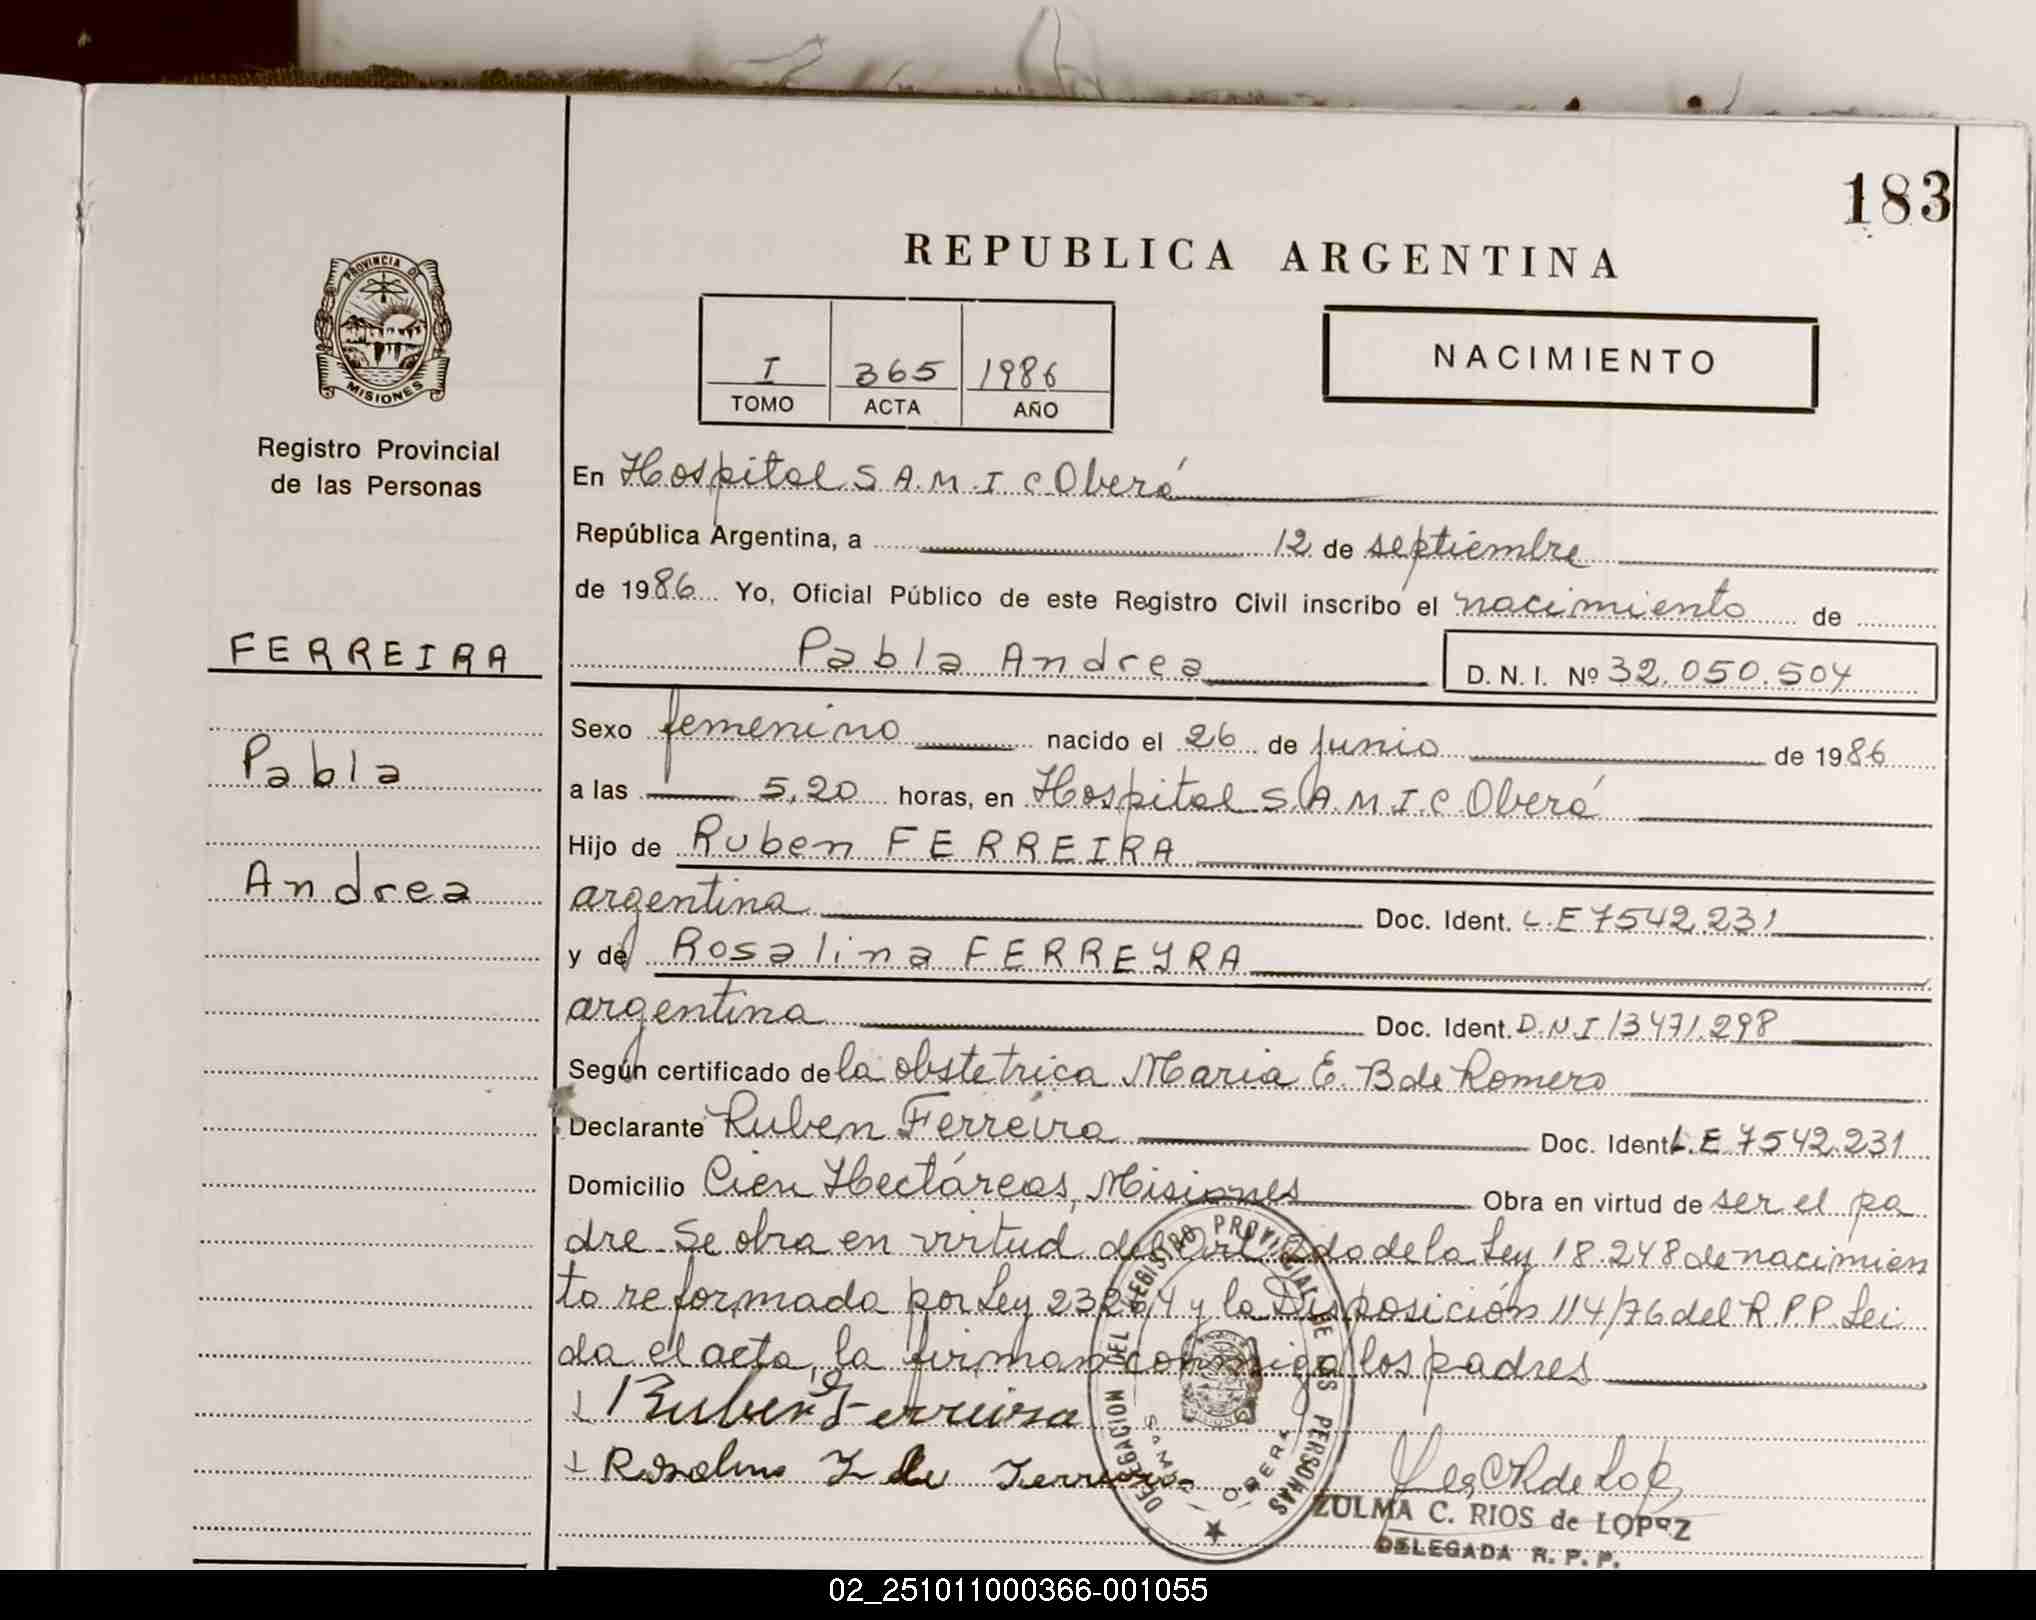 183
REPUBLICA ARGENTINA
PROVINCIA DE
MISIONES
Registro Provincial
de las Personas
I 365 1986
TOMO ACTA AÑO
NACIMIENTO
En Hospital S.A.M.I.C Oberá
República Argentina, a 12 de septiembre
de 1986 Yo, Oficial Público de este Registro Civil inscribo el nacimiento de
FERREIRA
Pabla Andrea D.N.I. Nº 32.050.504
Sexo femenino nacido el 26 de junio de 1986
Pabla
a las 5,20 horas, en Hospital S.A.M.I.C Oberá
Hijo de Ruben FERREIRA
Andrea
argentina Doc. Ident. L.E 7542.231
y de Rosalina FERREYRA
argentina Doc. Ident. D.N.I 13471.298
Según certificado de la obstetrica Maria E. B de Romero
Declarante Ruben Ferreira Doc. Ident. L.E 7542.231
Domicilio Cien Hectáreas, Misiones Obra en virtud de ser el pa
dre Se obra en virtud del art 2do de la Ley 18.248 de nacimien
to reformada por Ley 23264 y la Disposición 114/76 del R.P.P. Lei
da el acta, la firman conmigo los padres
Ruben Ferreira
DELEGACION DEL REGISTRO PROVINCIAL DE LAS PERSONAS
SAMIC OBERA
ZULMA C. RIOS de LOPEZ
DELEGADA R. P. P.
02_251011000366-001055